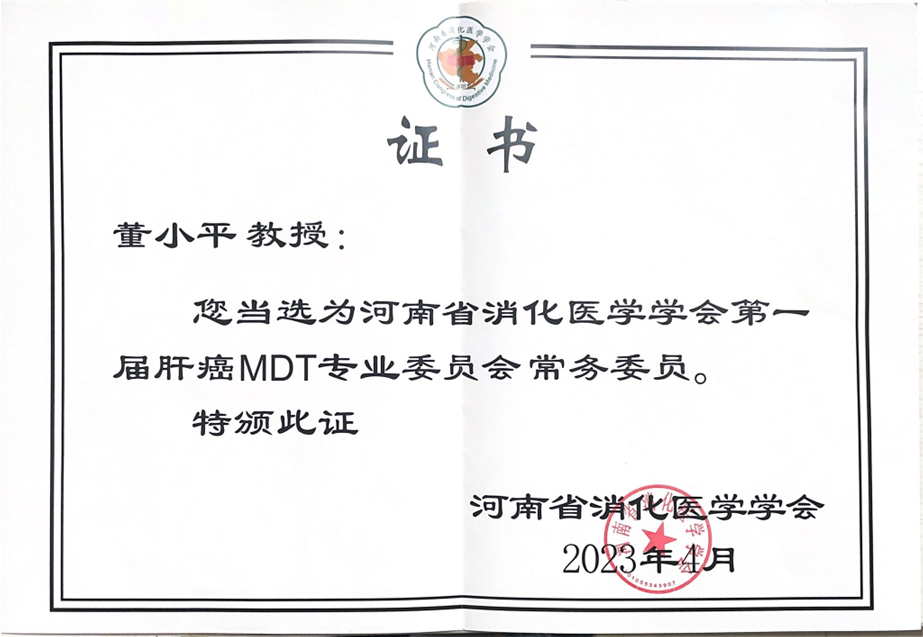 河南省消化医学学会
Henan Congress of Digestive Medicine
证 书
董小平 教授：
您当选为河南省消化医学学会第一
届肝癌MDT专业委员会常务委员。
特颁此证
河南省消化医学学会
2023年4月
河南省消化医学学会